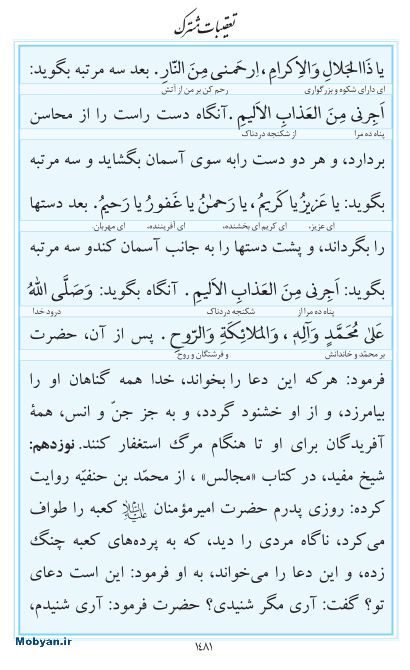 تعقیبات مشترک
یا ذَا الجَلالِ وَالاِکرامِ، اِرحَمنی مِنَ النّارِ. بعد سه مرتبه بگوید:
ای دارای شکوه و بزرگواری رحم کن بر من از آتش
اَجِرنی مِنَ العَذابِ الاَلیمِ. آنگاه دست راست را از محاسن
پناه ده مرا از شکنجه دردناک
بردارد، و هر دو دست رابه سوی آسمان بگشاید و سه مرتبه
بگوید: یا عَزیزُ یا کَریمُ، یا رَحمٰنُ یا غَفورُ یا رَحیمُ. بعد دستها
ای عزیز، ای کریم ای بخشنده، ای آفریننده. ای مهربان.
را بگرداند، و پشت دستها را به جانب آسمان کندو سه مرتبه
بگوید: اَجِرنی مِنَ العَذابِ الاَلیمِ. آنگاه بگوید: وَصَلَّی اللهُ
پناه ده مرا از شکنجه دردناک درود خدا
عَلیٰ مُحَمَّدٍ وَآلِهِ، وَالمَلائِکَةِ وَالرّوحِ. پس از آن، حضرت
بر محمّد و خاندانش و فرشتگان و روح
فرمود: هرکه این دعا را بخواند، خدا همه گناهان او را
بیامرزد، و از او خشنود گردد، و به جز جنّ و انس، همهٔ
آفریدگان برای او تا هنگام مرگ استغفار کنند. نوزدهم:
شیخ مفید، در کتاب «مجالس»، از محمّد بن حنفیّه روایت
کرده: روزی پدرم حضرت امیرمؤمنان علیه‌السلام کعبه را طواف
می‌کرد، ناگاه مردی را دید، که به پرده‌های کعبه چنگ
زده، و این دعا را می‌خواند، به او فرمود: این است دعای
تو؟ گفت: آری مگر شنیدی؟ حضرت فرمود: آری شنیدم،
Mobyan.ir
۱۴۸۱